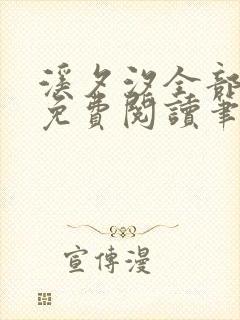 溪夕汐全部
免費閱讀筆
宣傳漫